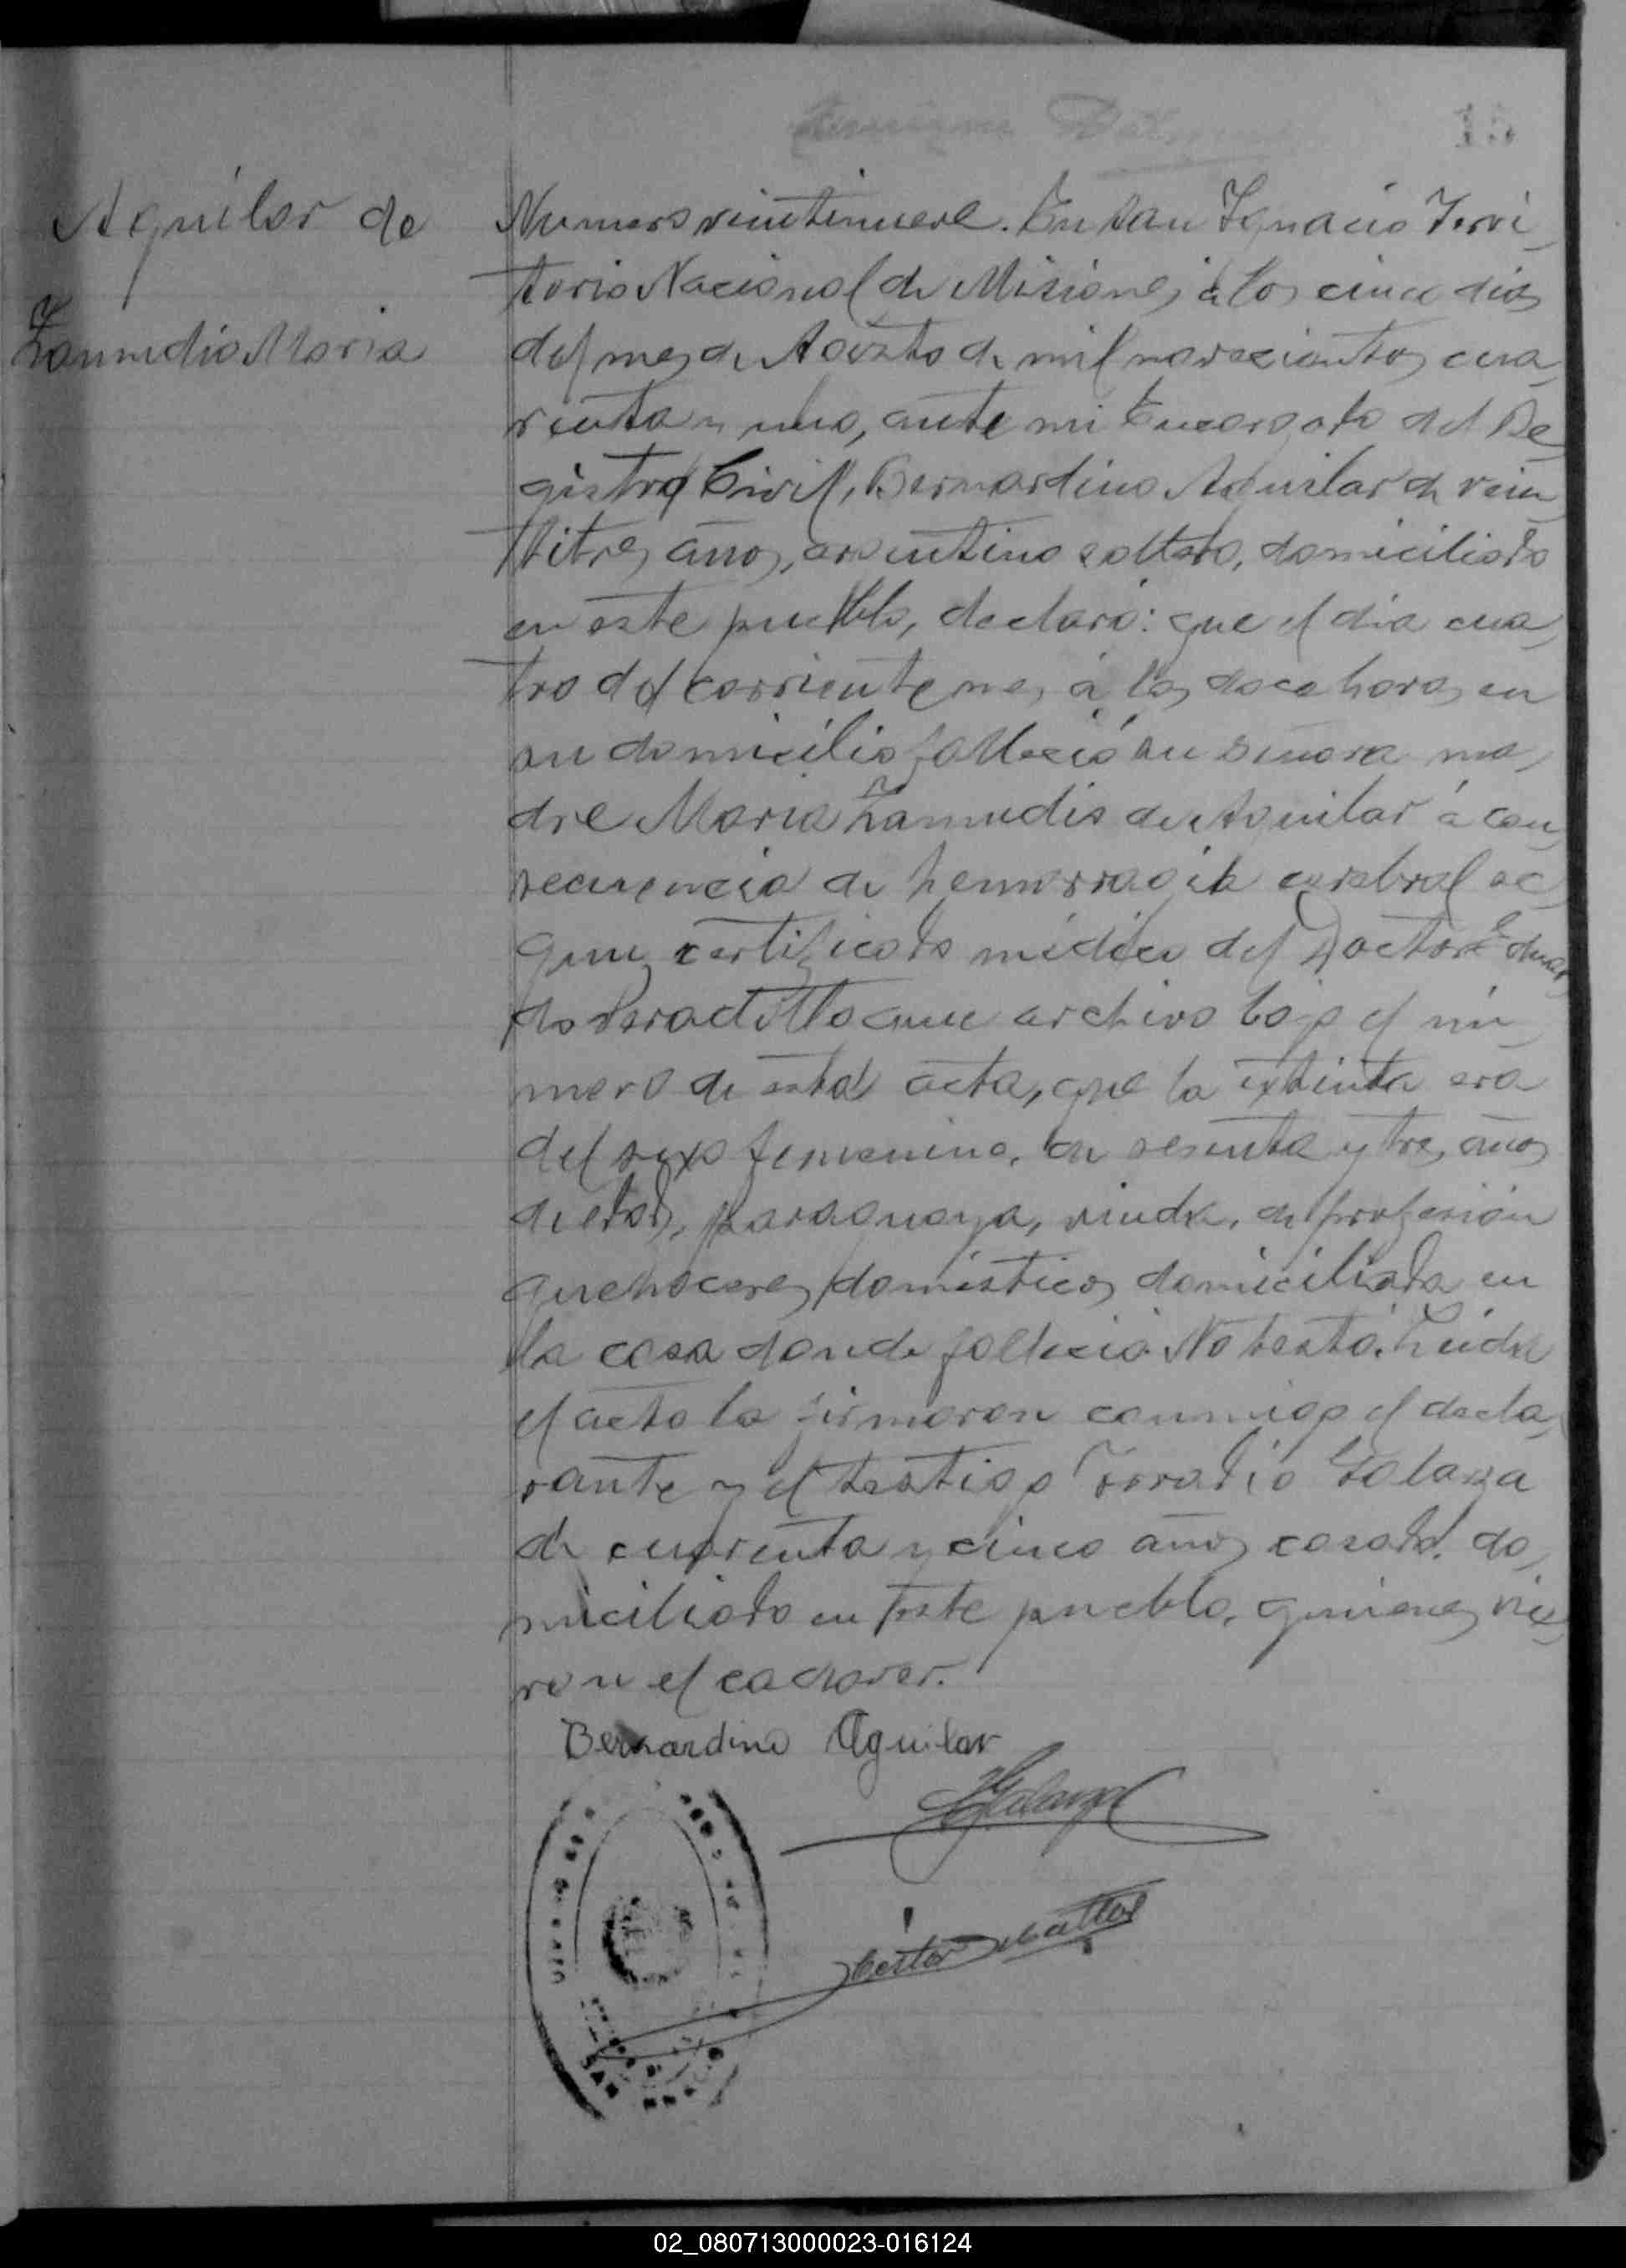 15
Aguilar de
Zamudio Maria
Numero veintinueve. En San Ignacio Terri
torio Nacional de Misiones á los cinco dias
del mes de Agosto de mil novecientos cua
renta y uno, ante mi Encargado del Re
gistro Civil, Bernardino Aguilar de vein
titres años, argentino soltero, domiciliado
en este pueblo, declaró: que el dia cua
tro del corriente mes á las doce horas en
su domicilio falleció su señora ma
dre Maria Zamudio de Aguilar á con
secuencia de hemorragia cerebral se
gun certificado médico del Doctor Eduar
do que archivo bajo el nú
mero de esta acta, que la extinta era
del sexo femenino, de sesenta y tres años
de edad, paraguaya, viuda, de profesión
quehaceres domésticos domiciliada en
la casa donde falleció. No testó. Leida
el acta la firmaron conmigo el decla
rante y el testigo Galarza
de cuarenta y cinco años casado, do
miciliado en este pueblo, quienes vie
ron el cadaver.
Bernardino Aguilar
02_080713000023-016124